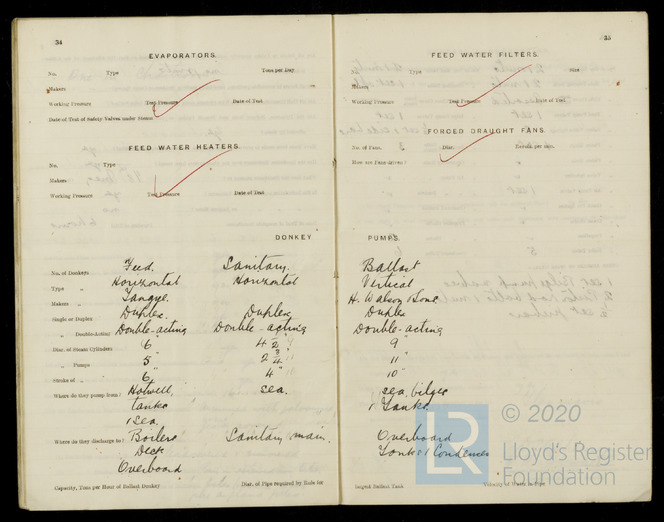 34
EVAPORATORS.
No. Type Tons per Day
Makers
Working Pressure Test Pressure Date of Test
Date of Test of Safety Valves under Steam
FEED WATER HEATERS.
No. Type
Makers
Working Pressure Test Pressure Date of Test
DONKEY
No. of Donkeys Feed. Sanitary.
Type " Horizontal Horizontal
Makers " Tangye.
Single or Duplex Duplex. Duplex.
" Double-Acting Double-acting Double-acting
Diar. of Steam Cylinders 6" 4 1/2"
" Pumps 5" 2 3/4"
Stroke of " 6" 4"
Where do they pump from? Hotwell, sea.
tanks
& sea.
Where do they discharge to? Boilers Sanitary main.
Deck
Overboard
Capacity, Tons per Hour of Ballast Donkey Diar. of Pipe required by Rule for
35
FEED WATER FILTERS.
Type Size
Makers
Working Pressure Test Pressure Date of Test
FORCED DRAUGHT FANS.
No. of Fans. Diar. Revols. per min.
How are Fans driven?
PUMPS.
Ballast
Vertical
H. Watson & Sons.
Duplex
Double-acting
9"
11"
10"
sea, bilges
& Tanks.
Overboard
Tanks & Condenser
Largest Ballast Tank Velocity of Water in Pipe
LR
© 2020
Lloyd's Register
Foundation